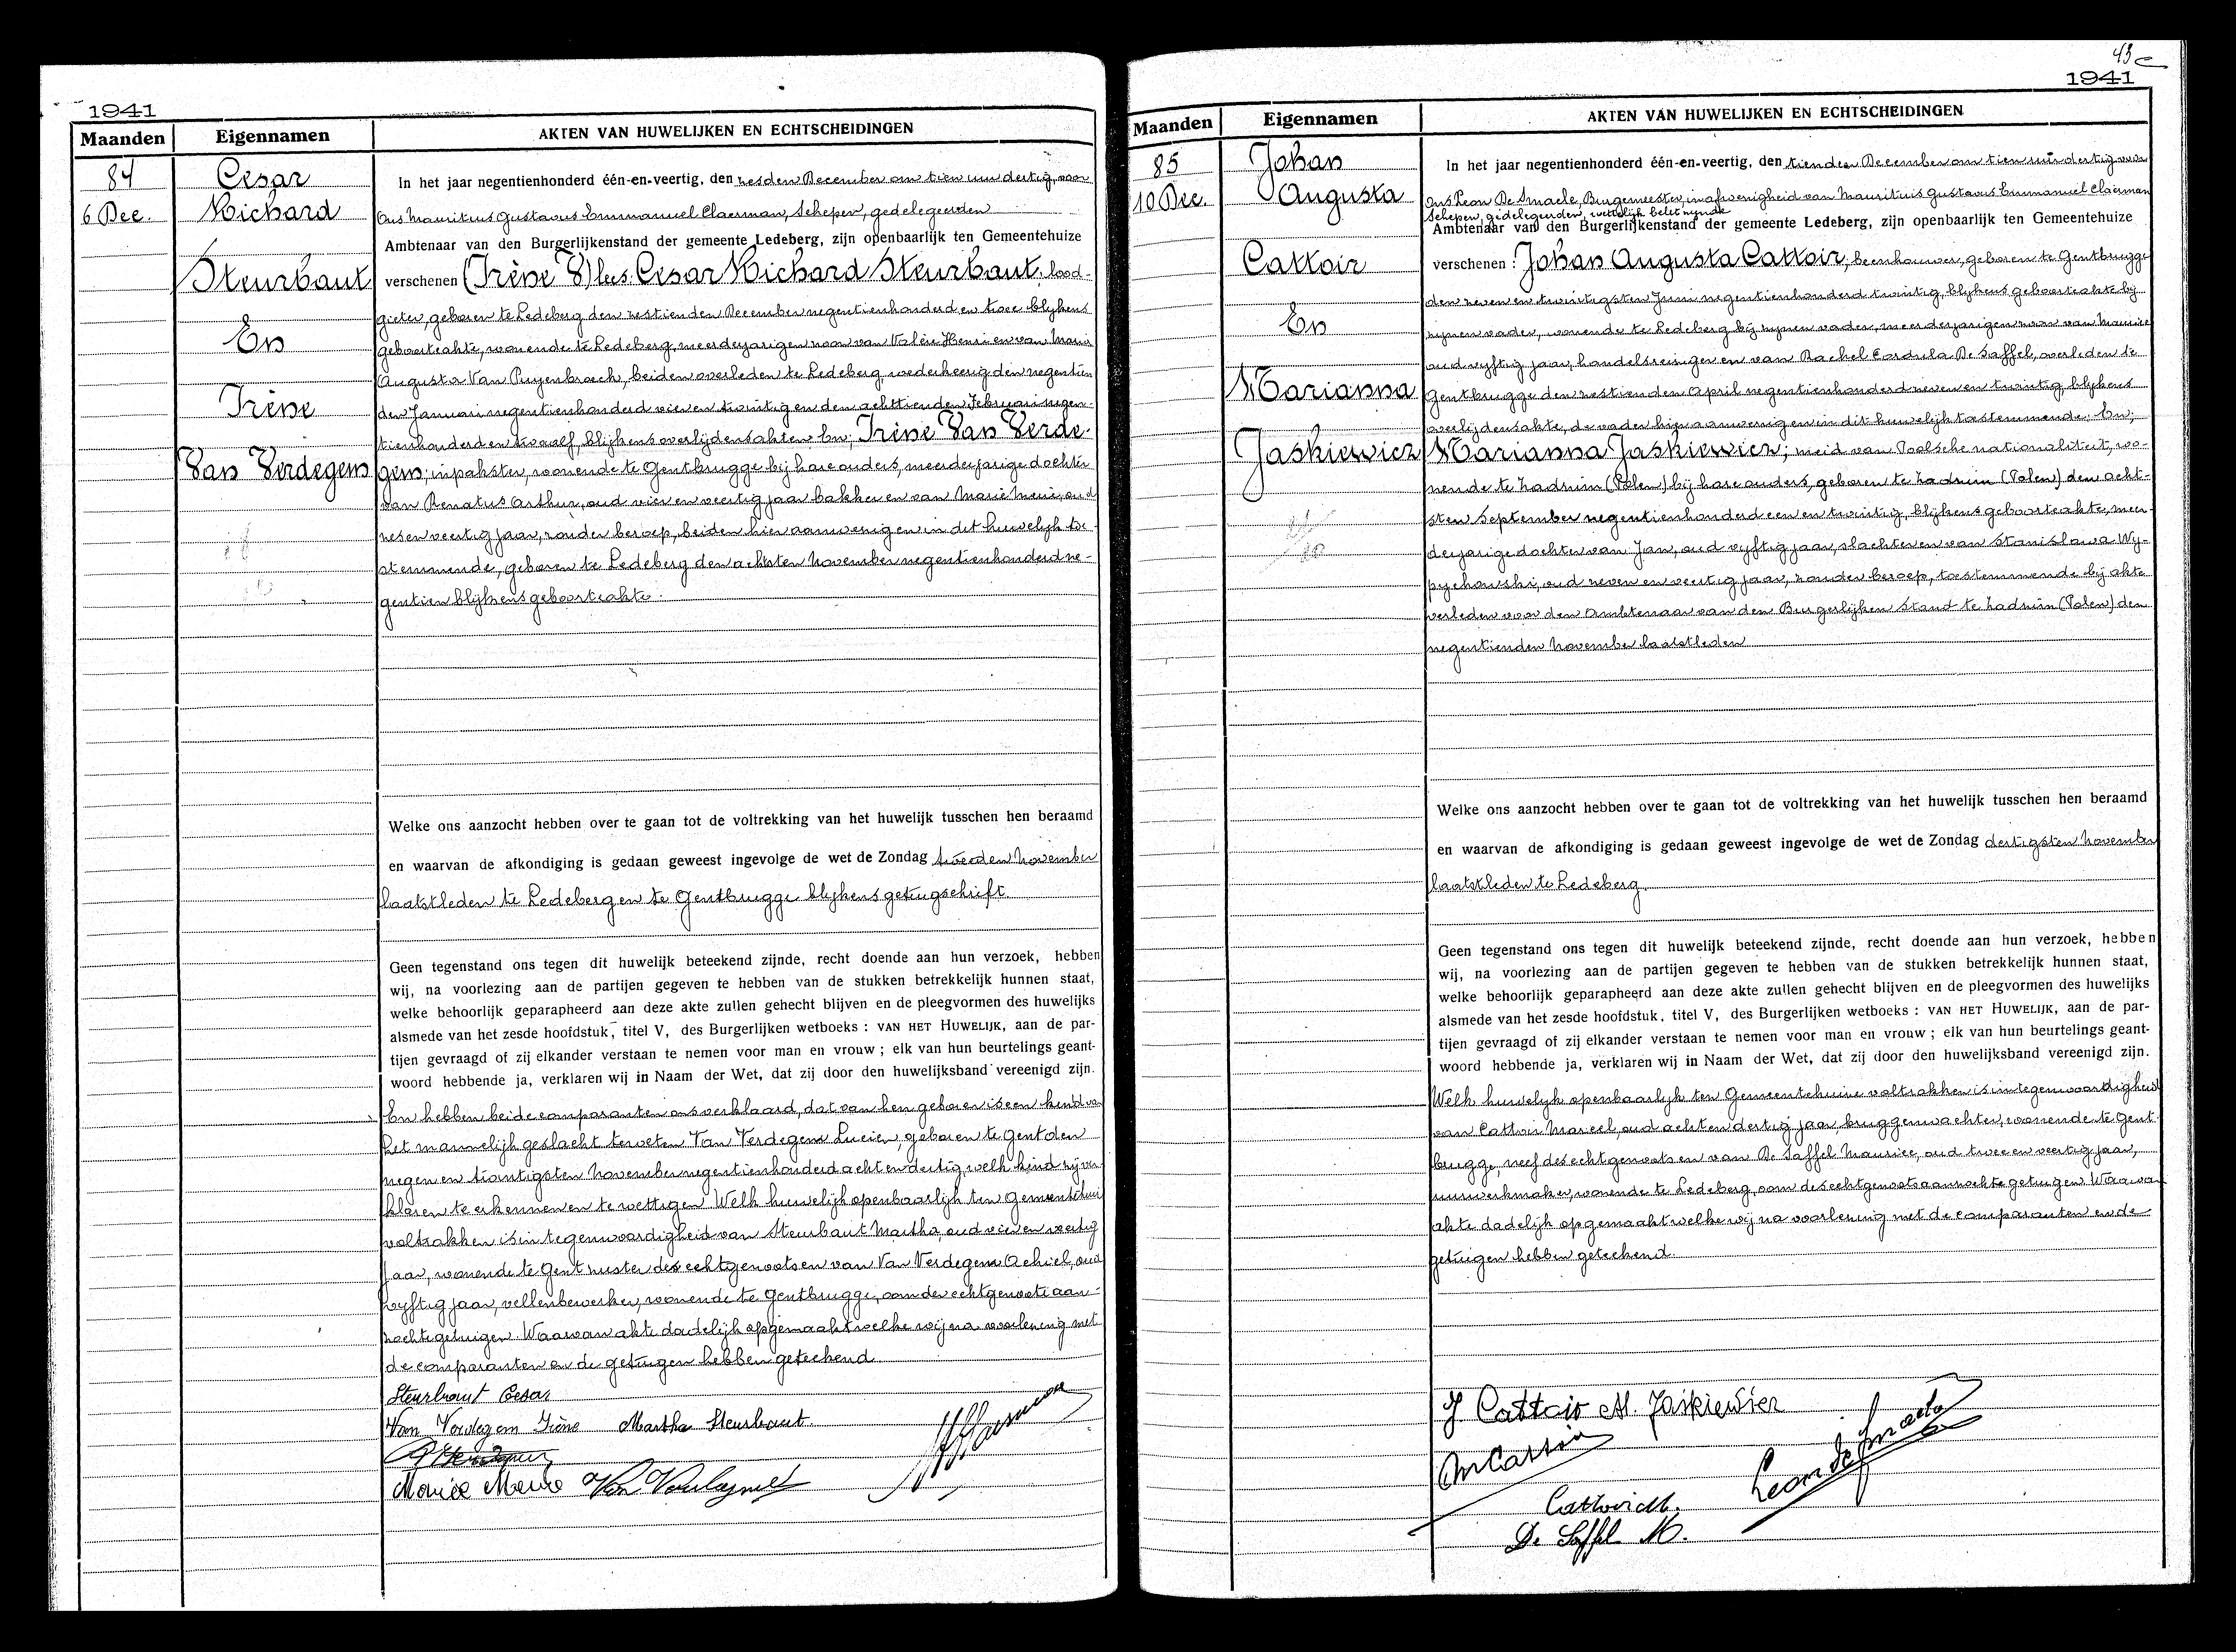 1941
Maanden Eigennamen AKTEN VAN HUWELIJKEN EN ECHTSCHEIDINGEN
84
6 Dec.
Cesar
Richard
Steurbaut
En
Irène
Van Verdegem
In het jaar negentienhonderd één-en-veertig, den zesden December om tien uur dertig, voor
Ons Mauritius Gustavus Emmanuel Claerman, Schepen, gedelegeerden
Ambtenaar van den Burgerlijkenstand der gemeente Ledeberg, zijn openbaarlijk ten Gemeentehuize
verschenen (Irène V) lees: Cesar Richard Steurbaut; lood-
gieter, geboren te Ledeberg den zestienden December negentienhonderd en twee blijkens
geboorteakte, wonende te Ledeberg, meerderjarigen zoon van Valère Henri en van Maria
Augusta Van Puyenbroeck, beiden overleden te Ledeberg, wederkeerig den negentien
den Januari negentienhonderd vier en twintig en den achttienden Februari negen-
tienhonderd en twaalf, blijkens overlijdensakten En; Irène Van Verde-
gem; inpakster, wonende te Gentbrugge bij hare ouders, meerderjarige dochter
van Renatus Arthur, oud vier en veertig jaar bakker en van Marie Meire, oud
zes en veertig jaar, zonder beroep, beiden hier aanwezig en in dit huwelijk toe-
stemmende, geboren te Ledeberg den achtsten November negentienhonderd ne-
gentien blijkens geboorteakte.
Welke ons aanzocht hebben over te gaan tot de voltrekking van het huwelijk tusschen hen beraamd
en waarvan de afkondiging is gedaan geweest ingevolge de wet de Zondag tweeden November
laatstleden te Ledeberg en te Gentbrugge blijkens getuigschrift.
Geen tegenstand ons tegen dit huwelijk beteekend zijnde, recht doende aan hun verzoek, hebben
wij, na voorlezing aan de partijen gegeven te hebben van de stukken betrekkelijk hunnen staat,
welke behoorlijk geparapheerd aan deze akte zullen gehecht blijven en de pleegvormen des huwelijks
alsmede van het zesde hoofdstuk, titel V, des Burgerlijken wetboeks : VAN HET HUWELIJK, aan de par-
tijen gevraagd of zij elkander verstaan te nemen voor man en vrouw ; elk van hun beurtelings geant-
woord hebbende ja, verklaren wij in Naam der Wet, dat zij door den huwelijksband vereenigd zijn.
En hebben beide comparanten ons verklaard, dat van hen geboren is een kind van
het mannelijk geslacht te weten Van Verdegem Lucien, geboren te Gent den
negen en twintigsten November negentienhonderd acht en dertig welk kind zij ver-
klaren te erkennen en te wettigen. Welk huwelijk openbaarlijk ten Gemeentehuize
voltrokken is in tegenwoordigheid van Steurbaut Martha, oud vier en veertig
jaar, wonende te Gent zuster des echtgenoots en van Van Verdegem Achiel, oud
vyftig jaar, vellenbewerker, wonende te Gentbrugge, oom der echtgenoote aan-
zochte getuigen. Waarvan akte dadelijk opgemaakt welke wij na voorlezing met
de comparanten en de getuigen hebben geteekend.
Steurbaut Cesar
Van Verdegem Irène Martha Steurbaut.
Marie Meire
1941
43
Maanden Eigennamen AKTEN VAN HUWELIJKEN EN ECHTSCHEIDINGEN
85
10 Dec.
Johan
Augusta
Cattoir
En
Marianna
Jaskiewicz
In het jaar negentienhonderd één-en-veertig, den tienden December om tien uur dertig voor
Ons Leon De Smaele, Burgemeester, in afwezigheid van Mauritius Gustavus Emmanuel Claerman
Schepen, gedelegeerden, wettelijk belet zynde
Ambtenaar van den Burgerlijkenstand der gemeente Ledeberg, zijn openbaarlijk ten Gemeentehuize
verschenen : Johan Augusta Cattoir; beenhouwer, geboren te Gentbrugge
den zeven en twintigsten Juni negentienhonderd twintig, blijkens geboorteakte bij
zijnen vader, wonende te Ledeberg bij zijnen vader, meerderjarigen zoon van Maurice
oud vyftig jaar, handelsreiziger en van Rachel Cordula De Saffel, overleden te
Gentbrugge den zestienden April negentienhonderd zeven en twintig, blijkens
overlijdensakte, de vader hier aanwezig en in dit huwelijk toestemmende; En;
Marianna Jaskiewicz; meid van Poolsche nationaliteit, wo-
nende te Zadzim (Polen) bij hare ouders, geboren te Zadzim (Polen) den acht-
sten September negentienhonderd een en twintig, blijkens geboorteakte, meer-
derjarige dochter van Jan, oud vyftig jaar, slachter en van Stanislawa Wy-
pychowski, oud zeven en veertig jaar, zonder beroep, toestemmende bij akte
verleden voor den Ambtenaar van den Burgerlijken Stand te Zadzim (Polen) den
negentienden November laatstleden
Welke ons aanzocht hebben over te gaan tot de voltrekking van het huwelijk tusschen hen beraamd
en waarvan de afkondiging is gedaan geweest ingevolge de wet de Zondag dertigsten November
laatstleden te Ledeberg.
Geen tegenstand ons tegen dit huwelijk beteekend zijnde, recht doende aan hun verzoek, hebben
wij, na voorlezing aan de partijen gegeven te hebben van de stukken betrekkelijk hunnen staat,
welke behoorlijk geparapheerd aan deze akte zullen gehecht blijven en de pleegvormen des huwelijks
alsmede van het zesde hoofdstuk, titel V, des Burgerlijken wetboeks : VAN HET HUWELIJK, aan de par-
tijen gevraagd of zij elkander verstaan te nemen voor man en vrouw ; elk van hun beurtelings geant-
woord hebbende ja, verklaren wij in Naam der Wet, dat zij door den huwelijksband vereenigd zijn.
Welk huwelijk openbaarlijk ten Gemeentehuize voltrokken is in tegenwoordigheid
van Cattoir Marcel, oud acht en dertig jaar, bruggenwachter, wonende te Gent-
brugge, neef des echtgenoots en van De Saffel Maurice, oud twee en veertig jaar,
uurwerkmaker, wonende te Ledeberg, oom des echtgenoots aanzochte getuigen. Waarvan
akte dadelijk opgemaakt welke wij na voorlezing met de comparanten en de
getuigen hebben geteekend.
J Cattoir M. Jaskiewier
M Cattoir
Leon De Smaele
Cattoir M.
De Saffel M.